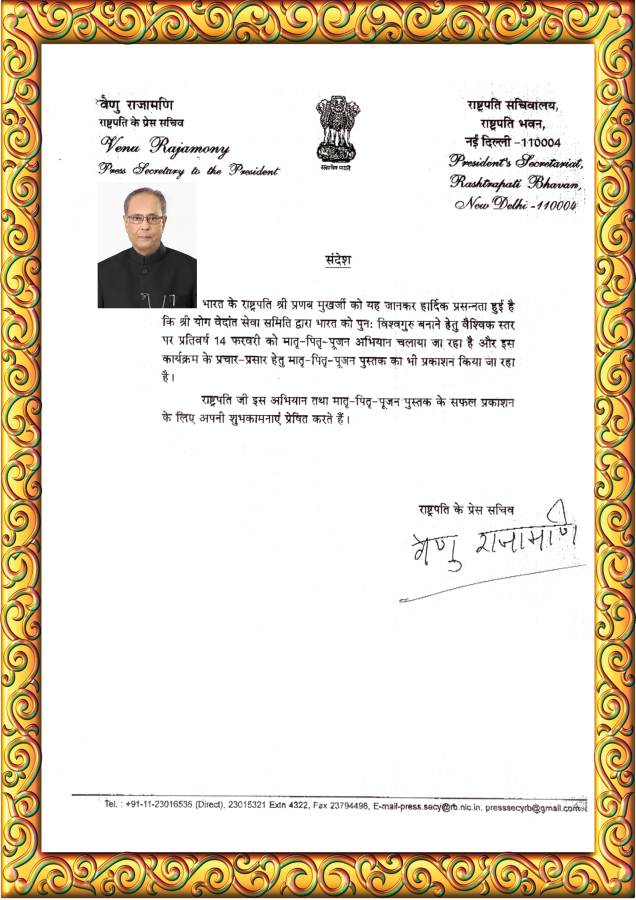 वेणु राजामणि
राष्ट्रपति के प्रेस सचिव
Venu Rajamony
Press Secretary to the President
सत्यमेव जयते
राष्ट्रपति सचिवालय,
राष्ट्रपति भवन,
नई दिल्ली -110004
President's Secretariat,
Rashtrapati Bhavan,
New Delhi -110004
संदेश
भारत के राष्ट्रपति श्री प्रणब मुखर्जी को यह जानकर हार्दिक प्रसन्नता हुई है
कि श्री योग वेदांत सेवा समिति द्वारा भारत को पुन: विश्वगुरु बनाने हेतु वैश्विक स्तर
पर प्रतिवर्ष 14 फरवरी को मातृ-पितृ-पूजन अभियान चलाया जा रहा है और इस
कार्यक्रम के प्रचार-प्रसार हेतु मातृ-पितृ-पूजन पुस्तक का भी प्रकाशन किया जा रहा
है।
राष्ट्रपति जी इस अभियान तथा मातृ-पितृ-पूजन पुस्तक के सफल प्रकाशन
के लिए अपनी शुभकामनाएं प्रेषित करते हैं।
राष्ट्रपति के प्रेस सचिव
वेणु राजामणि
Tel. : +91-11-23016535 (Direct), 23015321 Extn 4322, Fax 23794498, E-mail-press.secy@rb.nic.in, presssecyrb@gmail.com